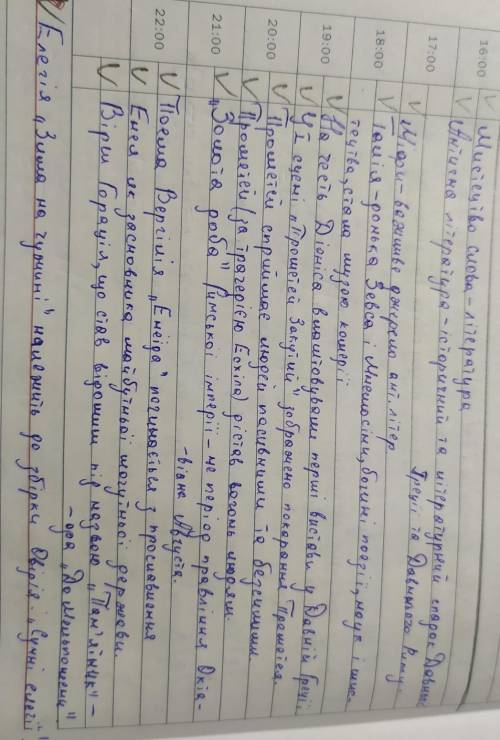 16:00
17:00
18:00
19:00
20:00
21:00
22:00
Мистецтво слова - література
Антична література - історичний та літературний спадок Давньої
Греції та Давнього Риму.
Міфи - важливе джерело ант. літер
Талія - донька Зевса і Мнемосіни, богині поезії, наук і мис-
тецтва, стала музою комедії
На честь Діоніса влаштовували перші вистави у Давній Греції.
У 1 сцені "Прометей Закутий" зображено покарання Прометея.
Прометей сприймає людей пасивними та безсилими.
Прометей (за трагедією Есхіла) дістав вогонь людям.
"Золота доба" Римської імперії - це період правління Окта-
- віана Августа.
Поема Вергілія "Енеїда" починається з прославлення
Енея як засновника майбутньої могутньої держави.
Вірш Горація, що став відомим під назвою "Пам'ятник" -
- ода "До Мельпомени"
Елегія "Зима на чужині" належить до збірки Овідія: "Сумні елегії"